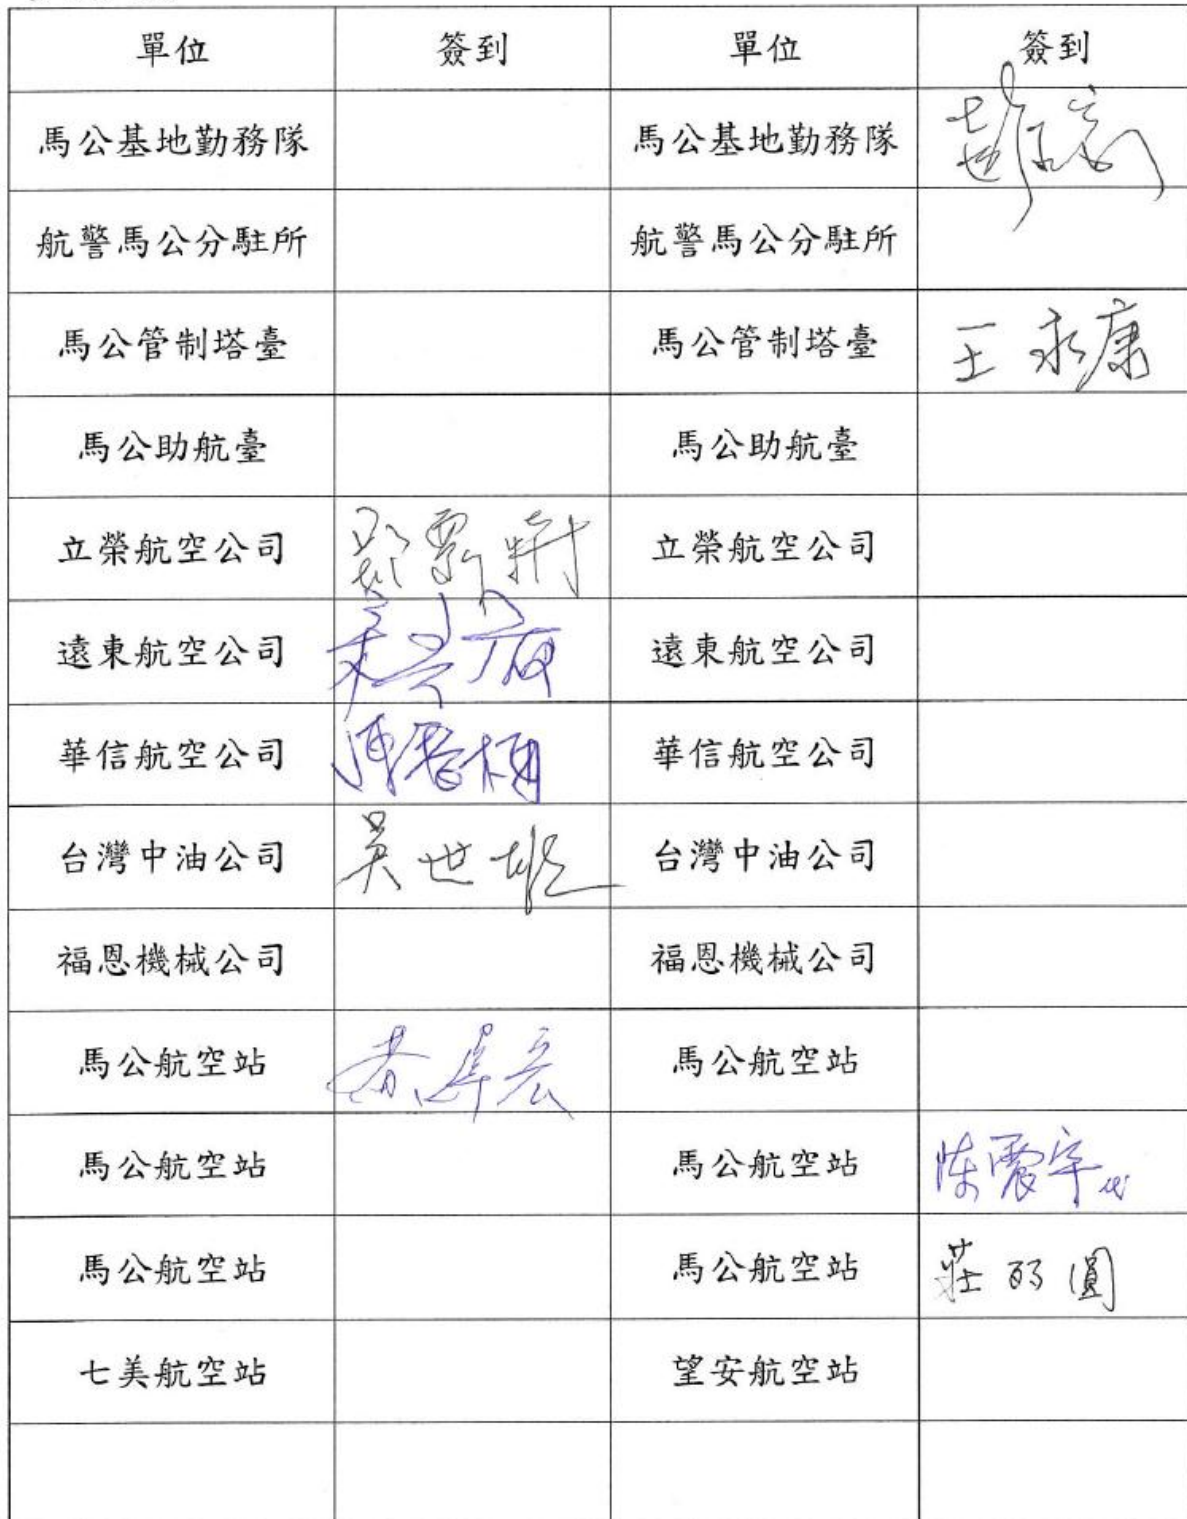 單位 簽到 單位 簽到
馬公基地勤務隊 馬公基地勤務隊
航警馬公分駐所 航警馬公分駐所
馬公管制塔臺 馬公管制塔臺 王永康
馬公助航臺 馬公助航臺
立榮航空公司 立榮航空公司
遠東航空公司 遠東航空公司
華信航空公司 華信航空公司
台灣中油公司 吳世雄 台灣中油公司
福恩機械公司 福恩機械公司
馬公航空站 馬公航空站
馬公航空站 馬公航空站 陳震宇代
馬公航空站 馬公航空站 莊
七美航空站 望安航空站